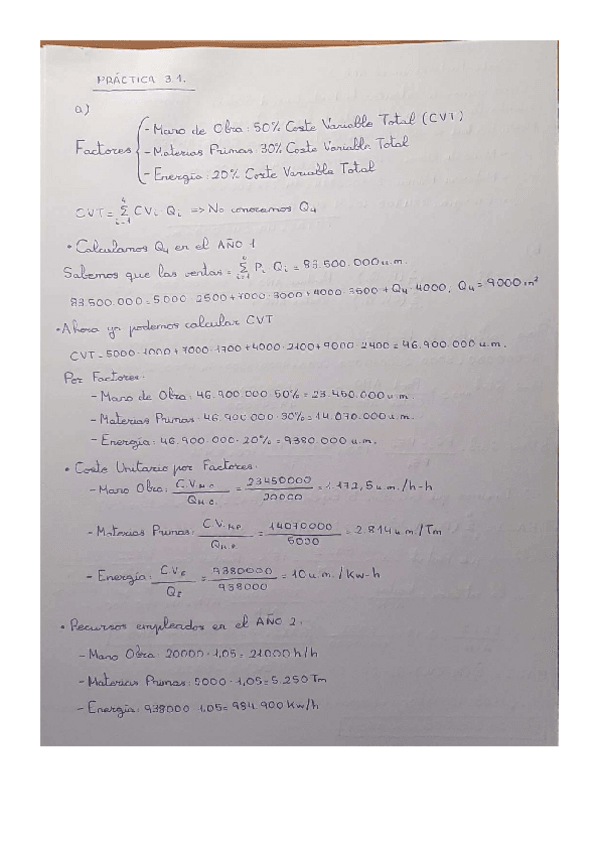 PRÁCTICA 3.1.
a)
Factores
- Mano de Obra: 50% Coste Variable Total (CVT)
- Materias Primas: 30% Coste Variable Total
- Energía: 20% Coste Variable Total
CVT = Σ CVi Qi => No conocemos Q4
• Calculamos Q4 en el AÑO 1
Sabemos que las ventas = Σ Pi Qi = 83.500.000 u.m.
83.500.000 = 5000 · 2500 + 7000 · 3000 + 4000 · 3500 + Q4 · 4000, Q4 = 9000 m²
• Ahora ya podemos calcular CVT
CVT = 5000 · 1000 + 7000 · 1700 + 4000 · 2100 + 9000 · 2400 = 46.900.000 u.m.
Por Factores:
- Mano de Obra: 46.900.000 · 50% = 23.450.000 u.m
- Materias Primas: 46.900.000 · 30% = 14.070.000 u.m.
- Energía: 46.900.000 · 20% = 9380.000 u.m.
• Coste Unitario por Factores:
- Mano Obra: C.V.M.O. / QM.O. = 23450000 / 20000 = 1.172,5 u.m./h-h
- Materias Primas: C.V.MP / QM.P. = 14070000 / 5000 = 2.814 u.m/Tm
- Energía: CVE / QE = 9380000 / 938000 = 10 u.m./Kw-h
• Recursos empleados en el AÑO 2:
- Mano Obra: 20000 · 1,05 = 21000 h/h
- Materias Primas: 5000 · 1,05 = 5.250 Tm
- Energía: 938000 · 1.05 = 984.900 Kw/h